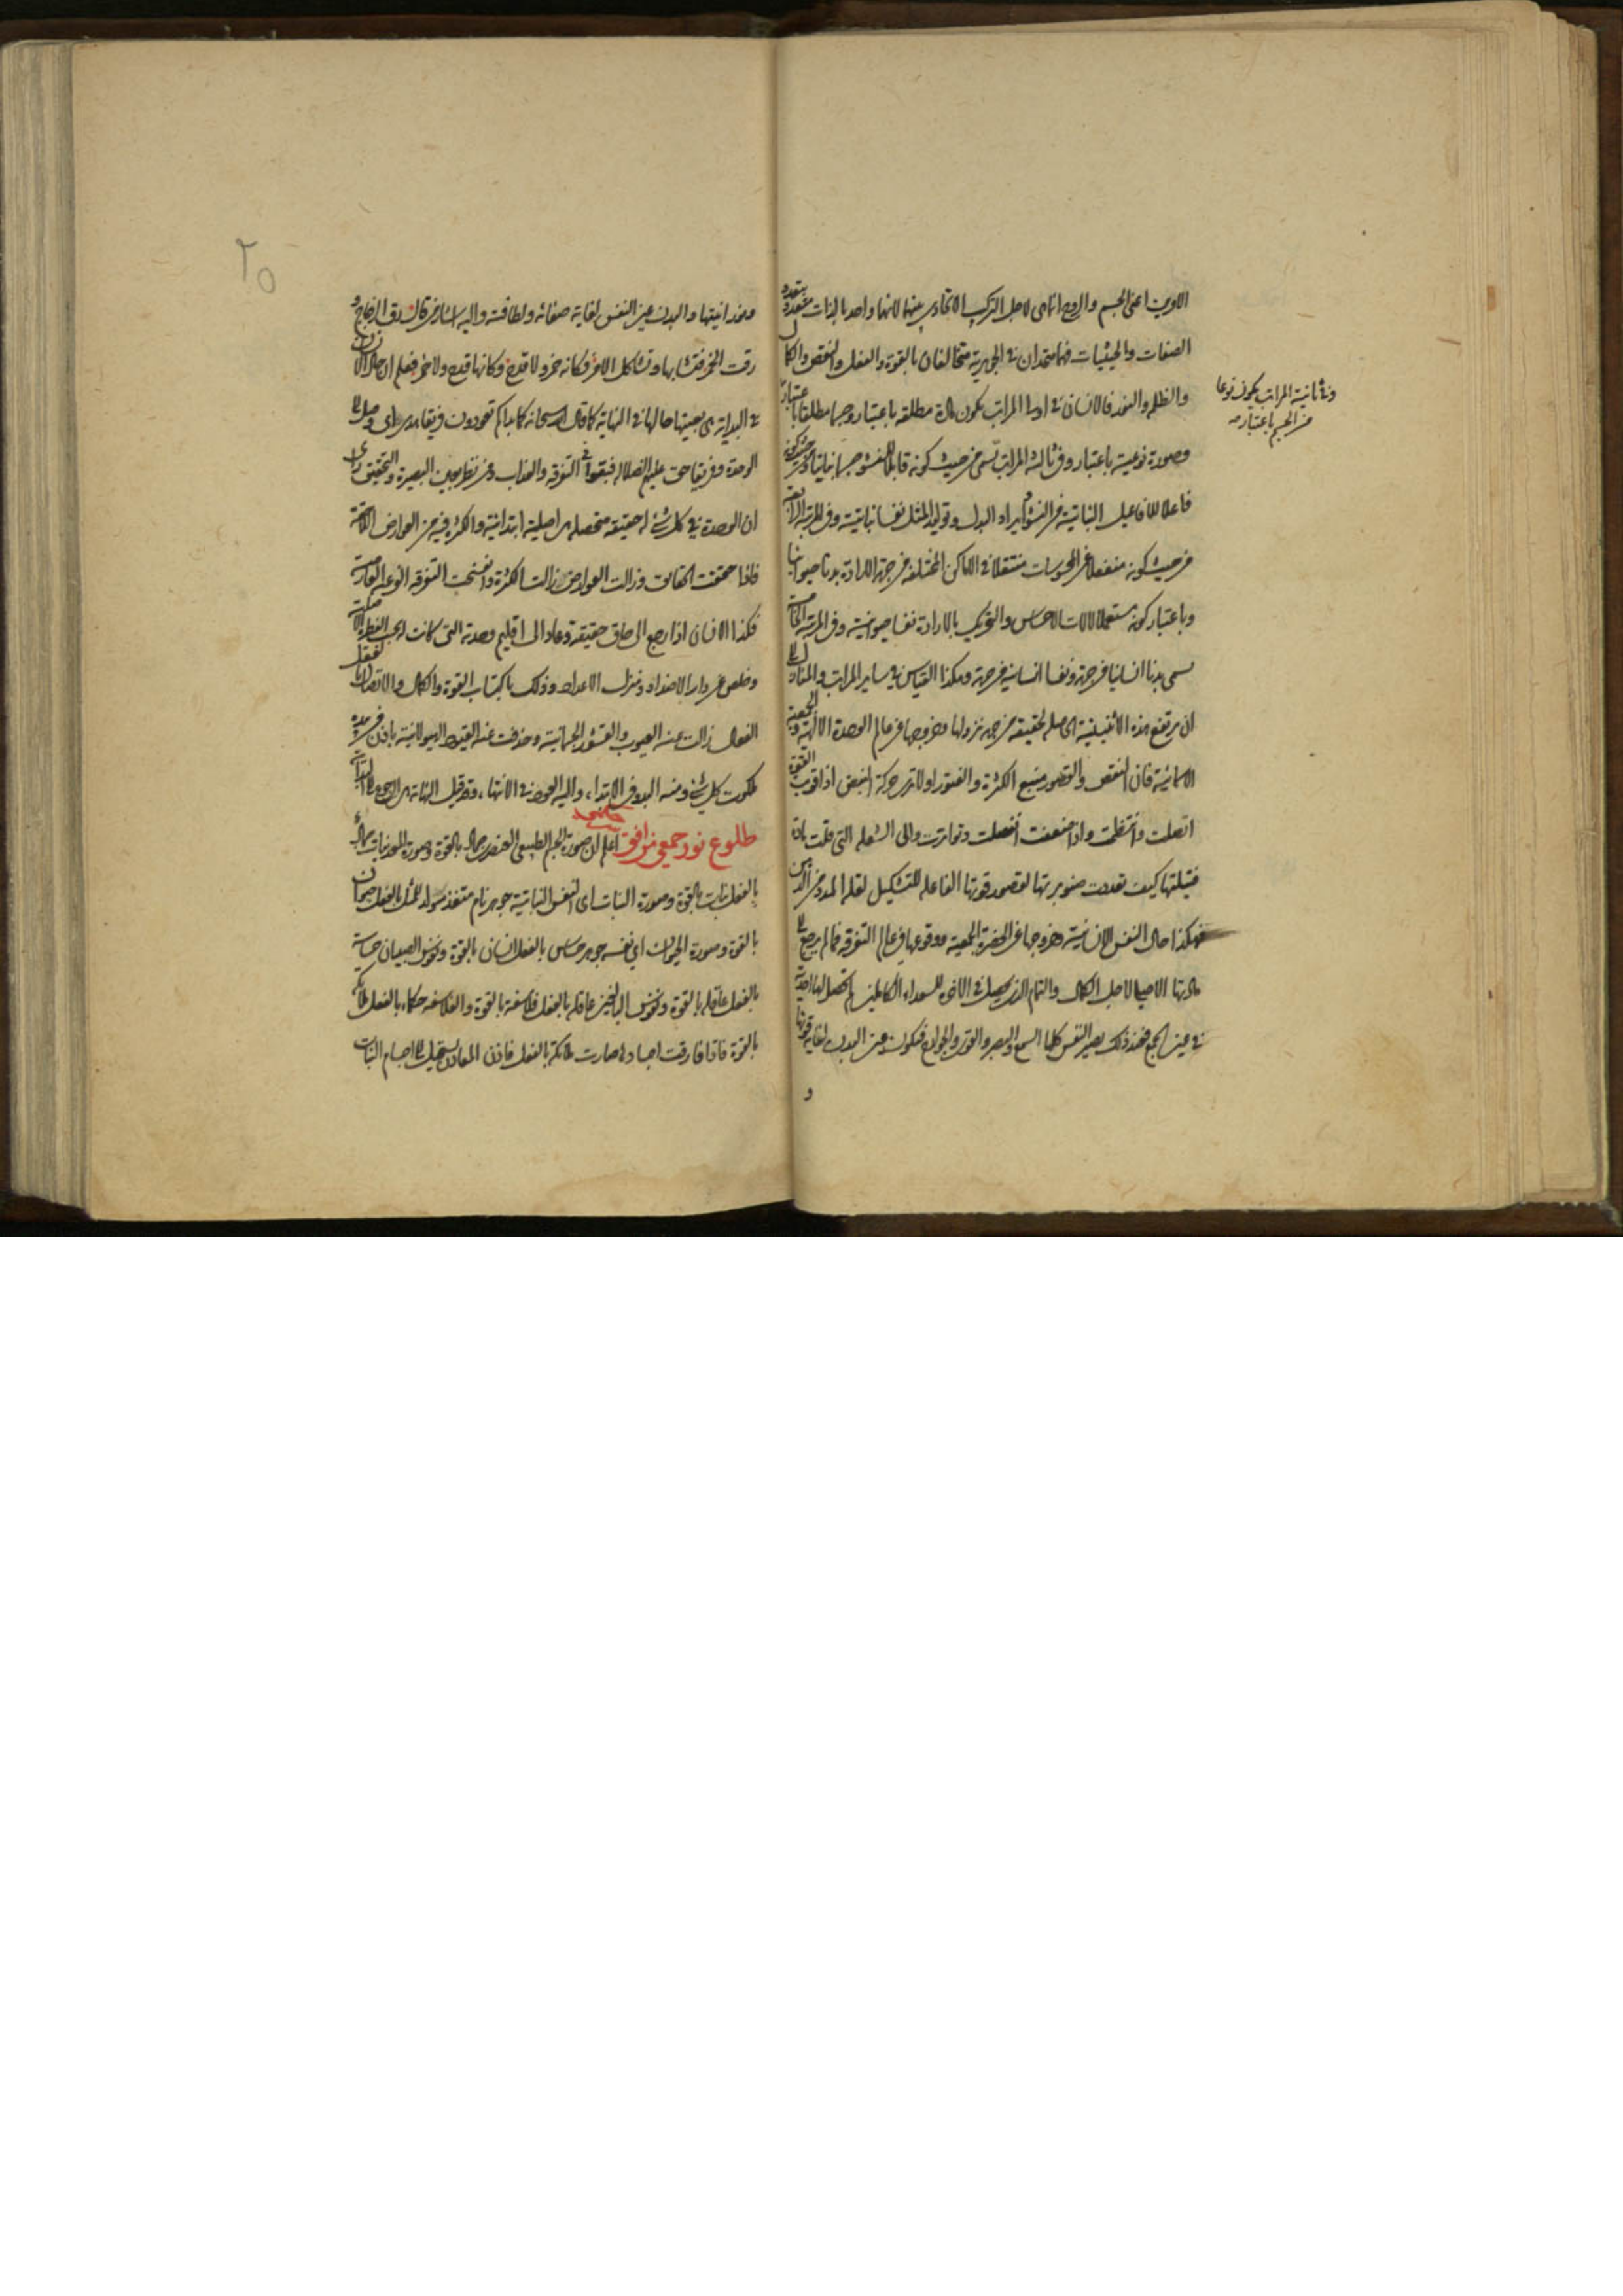 الاولين اعنى الجسم والروح انما هى لاجل التركيب الاتحادى بينهما لانهما واحد بالذات متعدد بتعدد
الصفات والحيثيات فهما متحدان فى الجوهرية متخالفان بالقوة والفعل والنقص والكمال
والظلم والنور فالانسان فى اول المراتب يكون مادة مطلقه باعتبار وجسما مطلقا باعتبار
وفى ثانية المراتب يكون نوعا
من الجسم باعتبار
وصورة نوعية باعتبار وفى ثالث المراتب تسمى من حيث كونه قابلا للنشو جسما نباتيا ومن حيث كونه
فاعلا للافاعيل النباتية من النشو وايراد البدل وتوليد المثل نفسا نباتية وفى المرتبة الرابعة
من حيث كونه منفعلا عن المحسوسات منتقلا فى الاماكن المختلفه من جهة الارادة بدنا حيوانيا
وباعتبار كونه مستعملا لالات الاحساس والتحريك بالارادة نفسا حيوانية وفى المرتبة الخامسة
يسمى بدنا انسانيا من جهة ونفسا انسانية من جهة وهكذا القياس فى ساير المراتب والمنازل الى
ان يرتفع هذه الاثنينية الحاصله لحقيقته من جهة نزولها وخروجها من عالم الوحدة الالهية والجمعية
الاسمائية فان النقص والقصور منبع الكثرة والفتور اولا ترى حركة النبض اذا قويت القوة
اتصلت وانتظمت واذا ضعفت انفصلت وتواترت والى الشعله التى قلت مادة
فتيلتها كيف تعددت صنوبريتها لقصور قوتها الفاعله للتشكيل لقله المدد من الدهن
فهكذا حال النفس الانسانية وخروجها عن الحضرة الجمعية ووقوعها فى عالم التفرقه فما لم يرجع الى
حالتها الاصلية لاجل الكمال والتمام الذى يحصل فى الاخرة للسعداء الكاملين لم تحصل لها الوحدة
فى عين الجمع فعند ذلك يصير النفس كلها السمع والبصر والقوى والجوارح فتكون عين البدن لغايه قوتها
و
ونورانيتها والبدن عين النفس لغاية صفائه ولطافته واليه اشار من قال رق الزجاج و
رقت الخمر فتشابها وتشاكل الامر فكانه خمر ولا قدح وكانها قدح ولا خمر فعلم ان حال الانسان
فى البداية هى بعينها حالها فى النهاية كما قال الله سبحانه كما بداكم تعودون فريقا هدى اى وصل الى
الوحدة وفريقا حق عليهم الضلاله فبقوا فى التفرقه والعذاب ومن نظر بعين البصيرة والتحقيق راى
ان الوحدة فى كل شئ له حقيقه متحصله هى اصلية ابتدائية والكثرة فيه من العوارض اللاحقة
فاذا حققت الحقايق وزالت العوارض زالت الكثرة وانفسخت التفرقه النوعية العارضة
فكذا الانسان اذا رجع الى حاق حقيقته وعاد الى اقليم وحدته التى كانت له بحسب الفطرة الاصلية
وخلص عن دار الاضداد ومنزل الاعداد وذلك باكتساب القوة والكمال والاتصال بالعقل
الفعال زالت عنه العيوب والقشور الجسمانية وحذفت عنه القيود الهيولانية باذن من بيده
ملكوت كل شئ ومنه البدو فى الابتداء واليه العود فى الانتهاء وقد قيل النهاية هى الرجوع الى البداية
طلوع نور جمعى من افق اعلم ان صورة الجسم الطبيعى العنصرى جماد بالقوة وصورة المعدنيات جماد
بالفعل نبات بالقوة وصورة النبات اى النفس النباتية جوهر نام متغذ مولد للمثل بالفعل حيوان
بالقوة وصورة الحيوان اى نفسه جوهر حساس بالفعل انسان بالقوة ونفوس الصبيان حساسة
بالفعل عاقله بالقوة ونفوس البالغين عاقله بالفعل فلاسفة بالقوة والفلاسفه حكماء بالفعل ملائكة
بالقوة فاذا فارقت اجسادها صارت ملائكة بالفعل فاذن المعادن تستحيل الى اجسام النبات
٢٥